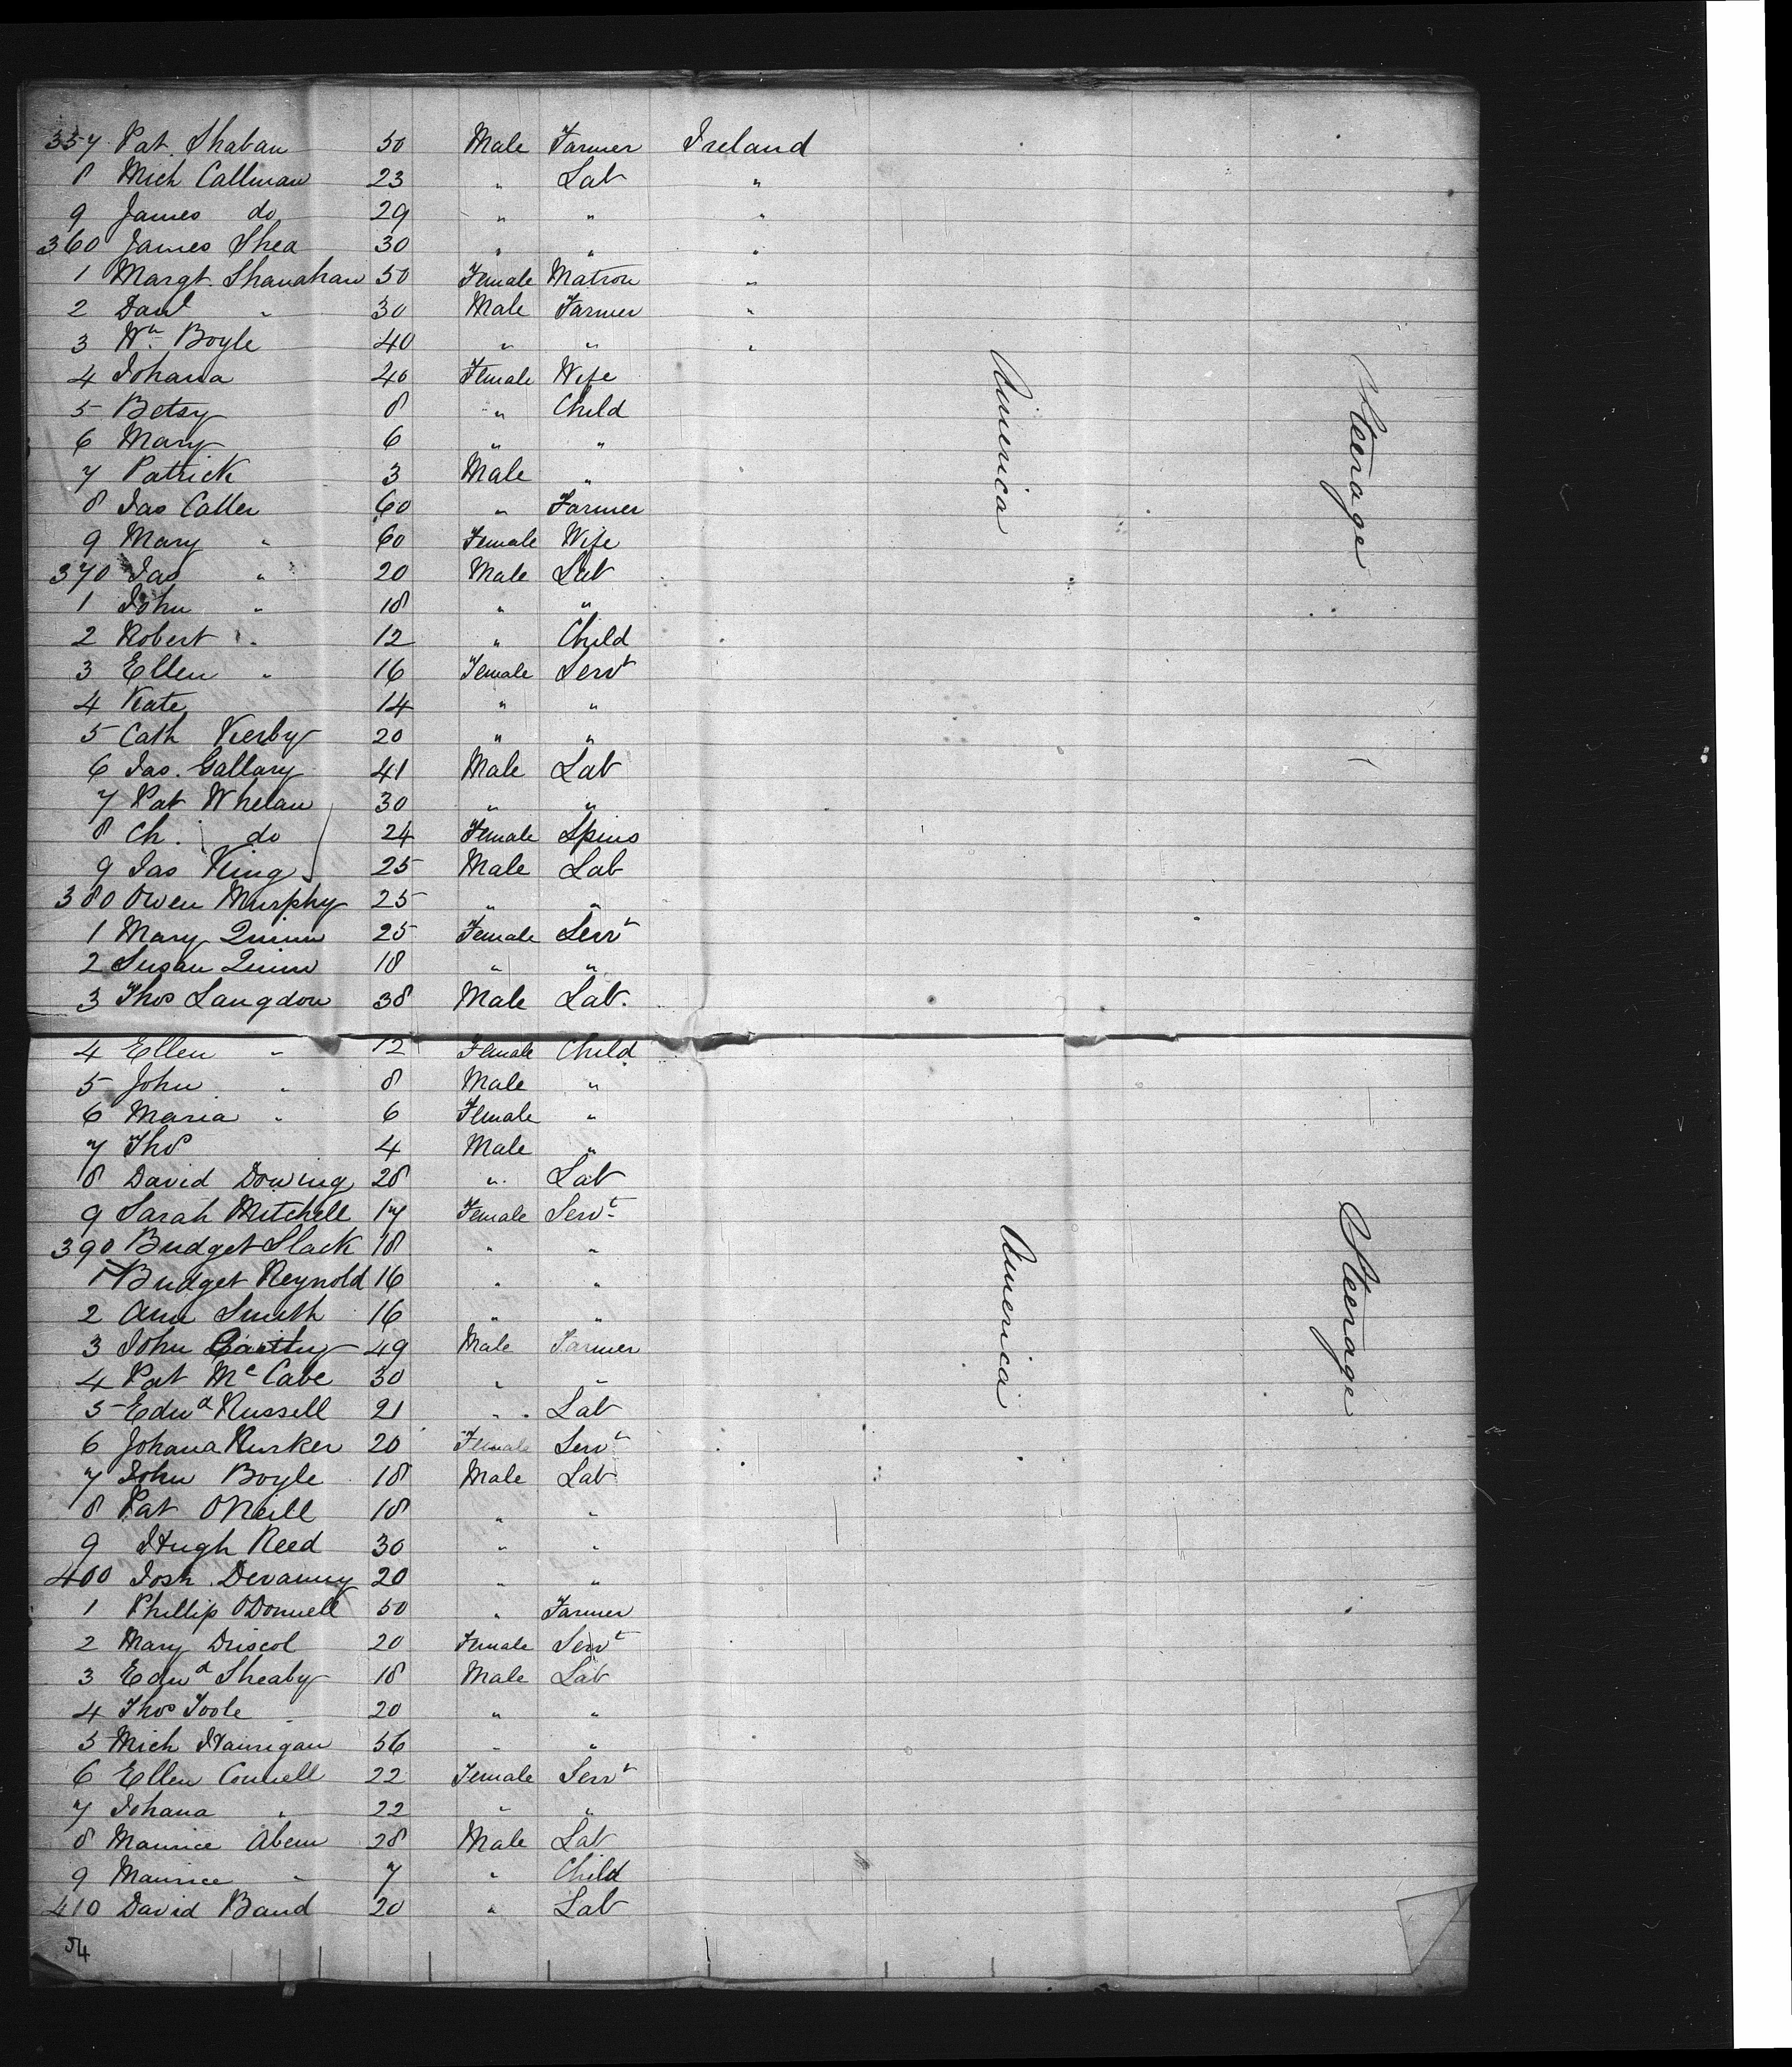 357 Pat. Shaban 50 Male Farmer Ireland
8 Mich Callman 23 " Lab "
9 James do 29 " " "
360 James Shea 30 " " "
1 Margt. Shanahan 50 Female Matron "
2 Danl " 30 Male Farmer "
3 Wm Boyle 40 " " "
4 Johana 40 Female Wife
5 Betsy 8 " Child
6 Mary 6 " "
7 Patrick 3 Male "
8 Jas Caller 60 " Farmer
9 Mary " 60 Female Wife
370 Jas " 20 Male Lab
1 John " 18 " "
2 Robert " 12 " Child
3 Ellen " 16 Female Servt
4 Kate 14 " "
5 Cath Kerby 20 " "
6 Jas. Gallary 41 Male Lab
7 Pat Whelan 30 " "
8 Ch. do 24 Female Spins
9 Jas King 25 Male Lab
380 Owen Murphy 25 " "
1 Mary Quinn 25 Female Servt
2 Susan Quinn 18 " "
3 Thos Langdon 38 Male Lab.
America
Steerage
4 Ellen " 12 Female Child
5 John " 8 Male "
6 Maria " 6 Female "
7 Thos 4 Male "
8 David Dowing 28 " Lab
9 Sarah Mitchell 17 Female Servt
390 Bridget Slack 18 " "
1 Bridget Reynold 16 " "
2 Ann Smith 16 " "
3 John 49 Male Farmer
4 Pat McCabe 30 " "
5 Edwd Russell 21 " Lab
6 Johana Rusker 20 Female Servt
7 John Boyle 18 Male Lab
8 Pat ONeill 18 " "
9 Hugh Reed 30 " "
400 Josh. Devanny 20 " "
1 Phillip ODonnell 50 " Farmer
2 Mary Driscol 20 Female Servt
3 Edwd Sheaby 18 Male Lab
4 Thos Toole 20 " "
5 Mich Hannigan 56 " "
6 Ellen Connell 22 Female Servt
7 Johana " 22 " "
8 Maurice Ahern 28 Male Lab
9 Maurice " 7 " Child
410 David Band 20 " Lab
America
Steerage
54